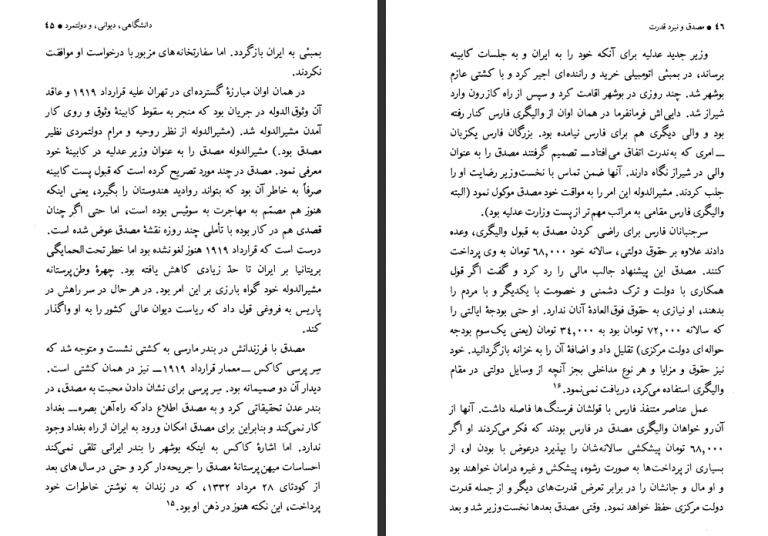 دانشگاهی، دیوانی، و دولتمرد ● ۴۵
بمبئی به ایران بازگردد. اما سفارتخانه‌های مزبور با درخواست او موافقت
نکردند.
در همان اوان مبارزهٔ گسترده‌ای در تهران علیه قرارداد ۱۹۱۹ و عاقد
آن وثوق‌الدوله در جریان بود که منجر به سقوط کابینهٔ وثوق و روی کار
آمدن مشیرالدوله شد. (مشیرالدوله از نظر روحیه و مرام دولتمردی نظیر
مصدق بود.) مشیرالدوله مصدق را به عنوان وزیر عدلیه در کابینهٔ خود
معرفی نمود. مصدق در چند مورد تصریح کرده است که قبول پست کابینه
صرفاً به خاطر آن بود که بتواند روادید هندوستان را بگیرد، یعنی اینکه
هنوز هم مصمّم به مهاجرت به سوئیس بوده است، اما حتی اگر چنان
قصدی هم در کار بوده با تأملی چند روزه نقشهٔ مصدق عوض شده است.
درست است که قرارداد ۱۹۱۹ هنوز لغو نشده بود اما خطر تحت‌الحمایگی
بریتانیا بر ایران تا حدّ زیادی کاهش یافته بود. چهرهٔ وطن‌پرستانه
مشیرالدوله خود گواه بارزی بر این امر بود. در هر حال در سر راهش در
پاریس به فروغی قول داد که ریاست دیوان عالی کشور را به او واگذار
کند.
مصدق با فرزندانش در بندر مارسی به کشتی نشست و متوجه شد که
سِر پرسی کاکس ــ معمار قرارداد ۱۹۱۹ ــ نیز در همان کشتی است.
دیدار آن دو صمیمانه بود. سِر پرسی برای نشان دادن محبت به مصدق، در
بندر عدن تحقیقاتی کرد و به مصدق اطلاع داد که راه‌آهن بصره ــ بغداد
کار نمی‌کند و بنابراین برای مصدق امکان ورود به ایران از راه بغداد وجود
ندارد. اما اشارهٔ کاکس به اینکه بوشهر را بندر ایرانی تلقی نمی‌کند
احساسات میهن‌پرستانهٔ مصدق را جریحه‌دار کرد و حتی در سال های بعد
از کودتای ۲۸ مرداد ۱۳۳۲، که در زندان به نوشتن خاطرات خود
پرداخت، این نکته هنوز در ذهن او بود.۱۵
۴۶ ● مصدق و نبرد قدرت
وزیر جدید عدلیه برای آنکه خود را به ایران و به جلسات کابینه
برساند، در بمبئی اتومبیلی خرید و راننده‌ای اجیر کرد و با کشتی عازم
بوشهر شد. چند روزی در بوشهر اقامت کرد و سپس از راه کازرون وارد
شیراز شد. دایی‌اش فرمانفرما در همان اوان از والیگری فارس کنار رفته
بود و والی دیگری هم برای فارس نیامده بود. بزرگان فارس یکزبان
ــ امری که به‌ندرت اتفاق می‌افتاد ــ تصمیم گرفتند مصدق را به عنوان
والی در شیراز نگاه دارند. آنها ضمن تماس با نخست‌وزیر رضایت او را
جلب کردند. مشیرالدوله این امر را به موافقت خود مصدق موکول نمود (البته
والیگری فارس مقامی به مراتب مهم تر از پست وزارت عدلیه بود).
سرجنبانان فارس برای راضی کردن مصدق به قبول والیگری، وعده
دادند علاوه بر حقوق دولتی، سالانه خود ۶۸٬۰۰۰ تومان به وی پرداخت
کنند. مصدق این پیشنهاد جالب مالی را رد کرد و گفت اگر قول
همکاری با دولت و ترک دشمنی و خصومت با یکدیگر و با مردم را
بدهند، او نیازی به حقوق فوق‌العادهٔ آنان ندارد. او حتی بودجهٔ ایالتی را
که سالانه ۷۲٬۰۰۰ تومان بود به ۳۴٬۰۰۰ تومان (یعنی یک سوم بودجه
حواله‌ای دولت مرکزی) تقلیل داد و اضافهٔ آن را به خزانه بازگردانید. خود
نیز حقوق و مزایا و هر نوع مداخلی بجز آنچه از وسایل دولتی در مقام
والیگری استفاده می‌کرد، دریافت نمی‌نمود.۱۶
عمل عناصر متنفذ فارس با قولشان فرسنگ‌ها فاصله داشت. آنها از
آن‌رو خواهان والیگری مصدق در فارس بودند که فکر می‌کردند او اگر
۶۸٬۰۰۰ تومان پیشکشی سالانه‌شان را بپذیرد درعوض با بودن او، از
بسیاری از پرداخت‌ها به صورت رشوه، پیشکش و غیره درامان خواهند بود
و او مال و جانشان را در برابر تعرض قدرت‌های دیگر و از جمله قدرت
دولت مرکزی حفظ خواهد نمود. وقتی مصدق بعدها نخست‌وزیر شد و بعد